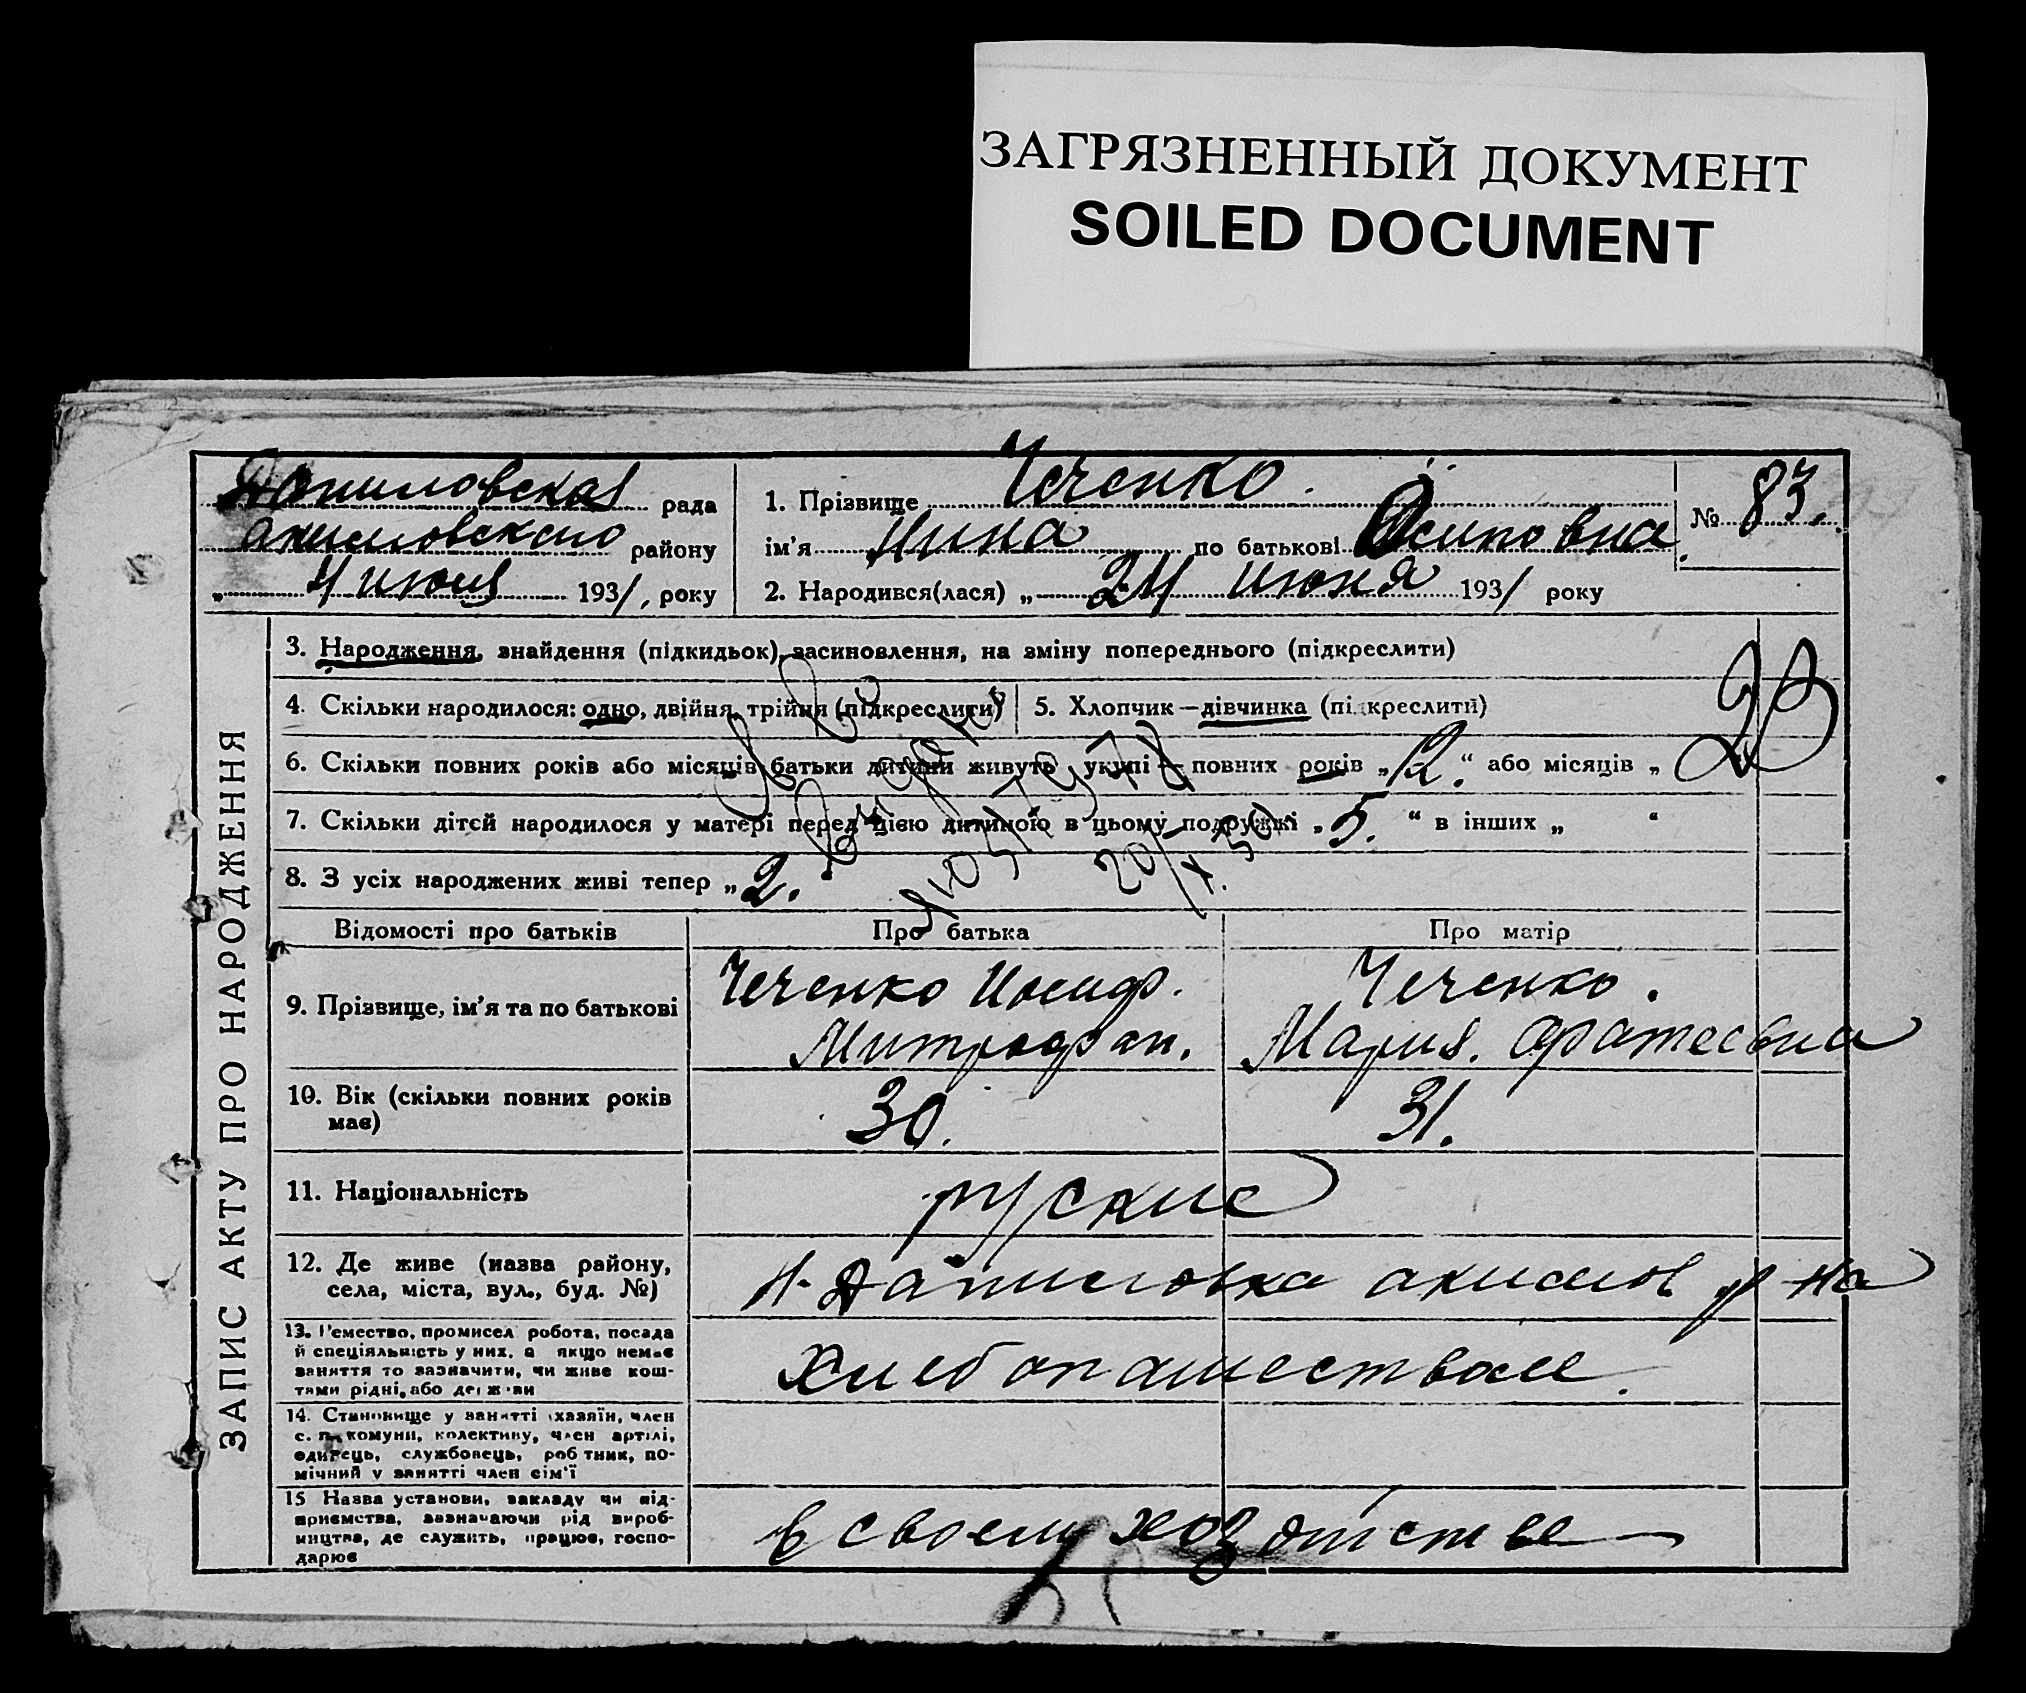 ЗАГРЯЗНЕННЫЙ ДОКУМЕНТ
SOILED DOCUMENT
Даниловская рада
Акимовского району
„ 4 июля 1931, року
1. Прізвище Чеченко.
ім'я Нина по батькові Осиповна.
№ 83.
2. Народився(лася) „ 24 июня 1931 року
ЗАПИС АКТУ ПРО НАРОДЖЕННЯ
3. Народження, знайдення (підкидьок), засиновлення, на зміну попереднього (підкреслити)
4. Скільки народилося: одно, двійня, трійня (підкреслити)
5. Хлопчик—дівчинка (підкреслити)
6. Скільки повних років або місяців батьки дитини живуть укупі — повних років „12.“ або місяців „
7. Скільки дітей народилося у матері перед цією дитиною в цьому подружжі „5.“ в інших „ “
8. З усіх народжених живі тепер „2.
Відомості про батьків Про батька Про матір
9. Прізвище, ім'я та по батькові
Чеченко Иосиф.
Митрофан.
Чеченко.
Мария.
10. Вік (скільки повних років
має)
30.
31.
11. Національність
руские
12. Де живе (назва району,
села, міста, вул., буд. №)
Н-Даниловка акимов р-на
13. Ремество, промисел робота, посада
й спеціяльність у них, а якщо немає
заняття то зазначити, чи живе кош-
тами рідні, або держави
Хлебопашеством.
14. Становище у занятті хазяїн, член
с. г. комуни, колективу, член артілі,
одинець, службовець, робтник, по-
мічний у занятті член сім'ї
15 Назва установи, закладу чи під-
приємства, зазначаючи рід вироб-
ництва, де служить, працює, госпо-
дарює
в своем хозяйстве